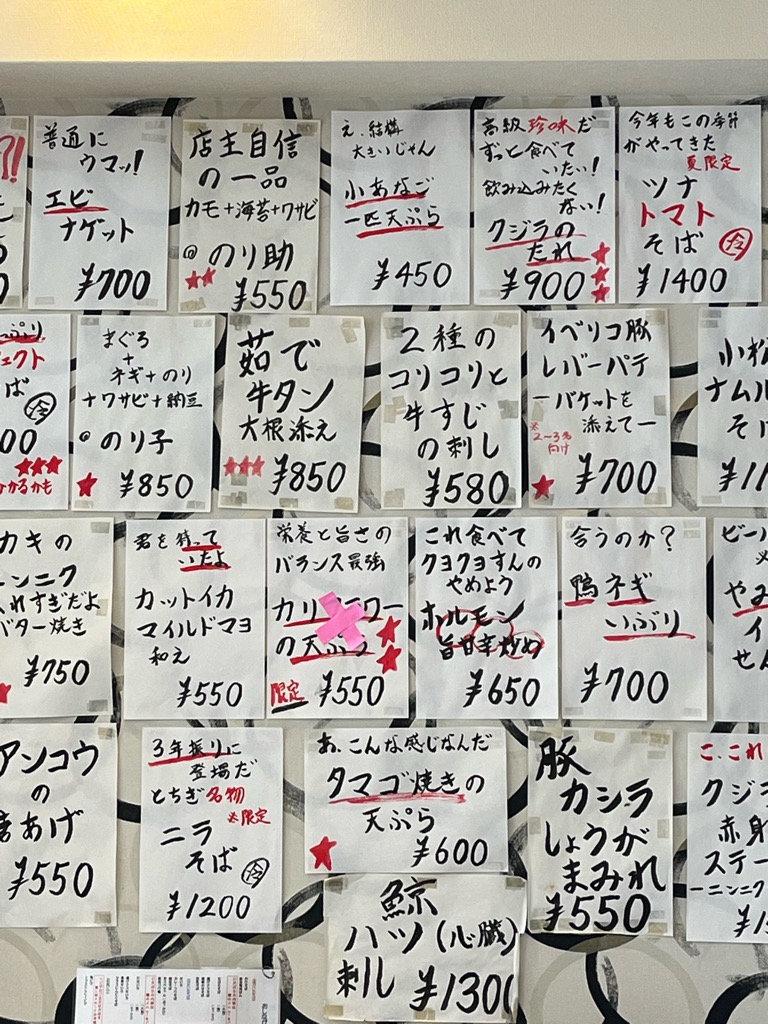 普通に
ウマッ!
エビ
ナゲット
¥700
店主自信
の一品
カモ+海苔+ワサビ
@のり助
¥550
え、結構
大きいじゃん
小あなご
一匹天ぷら
¥450
高級珍味だ
ずっと食べて
いたい!
飲み込みたく
ない!
クジラの
たれ
¥900
今年もこの季節
がやってきた
夏限定
ツナ
トマト
そば 冷
¥1400
ぷり
ェクト
ば 冷
00
かかるかも
まぐろ
+
ネギ+のり
+ワサビ+納豆
@のり子
¥850
茹で
牛タン
大根添え
¥850
2種の
コリコリと
牛すじ
の刺し
¥580
イベリコ豚
レバーパテ
ーバケットを
添えてー
※2〜3名
向け
¥700
小松
ナムル
そば
¥11
カキの
ンニク
入れすぎだよ
バター焼き
¥750
君を待って
いたよ
カットイカ
マイルドマヨ
和え
¥550
栄養と旨さの
バランス最強
カリフラワー
の天ぷら
限定 ¥550
これ食べて
クヨクヨすんの
やめよう
ホルモン
旨甘辛炒め
¥650
合うのか?
鴨ネギ
いぶり
¥700
ビー
やみ
イ
せん
アンコウ
の
唐あげ
¥550
3年振りに
登場だ
とちぎ名物
※限定
ニラ
そば 冷
¥1200
あ、こんな感じなんだ
タマゴ焼きの
天ぷら
¥600
豚
カシラ
しょうが
まみれ
¥550
こ、これ
クジラ
赤身
ステー
ーニンニク
鯨
ハツ(心臓)
刺し ¥1300